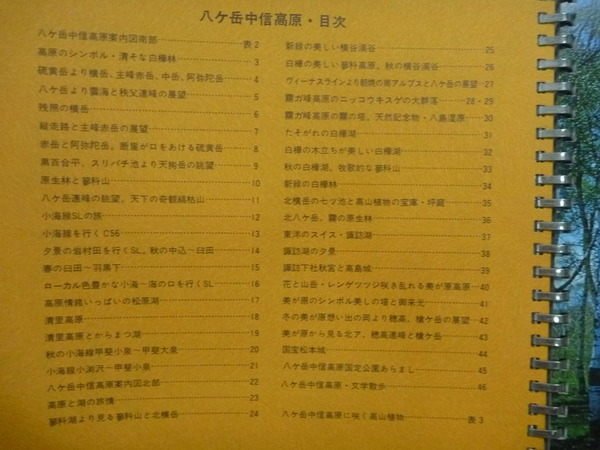 八ケ岳中信高原・目次
八ケ岳中信高原案内図南部 表2
高原のシンボル・清そな白樺林 3
硫黄岳より横岳、主峰赤岳、中岳、阿弥陀岳 4
八ケ岳より雲海と秩父連峰の展望 5
残照の横岳 6
縦走路と主峰赤岳の展望 7
赤岳と阿弥陀岳。断崖が口をあける硫黄岳 8
黒百合平、スリバチ池より天狗岳の眺望 9
原生林と蓼科山 10
八ケ岳連峰の眺望、天下の奇観縞枯山 11
小海線SLの旅 12
小海線を行くC56 13
夕景の岩村田を行くSL。秋の中込〜臼田 14
春の臼田〜羽黒下 15
ローカル色豊かな小海〜海の口を行くSL 16
高原情緒いっぱいの松原湖 17
清里高原 18
清里高原とからまつ湖 19
秋の小海線甲斐小泉〜甲斐大泉 20
小海線小渕沢〜甲斐小泉 21
八ケ岳中信高原案内図北部 22
高原と湖の旅情 23
蓼科湖より見る蓼科山と北横岳 24
新緑の美しい横谷渓谷 25
白樺の美しい蓼科高原、秋の横谷渓谷 26
ヴィーナスラインより朝焼の南アルプスと八ケ岳の展望 27
霧ガ峰高原のニッコウキスゲの大群落 28・29
霧ガ峰高原の霧の塔、天然記念物・八島湿原 30
たそがれの白樺湖 31
白樺の木立ちが美しい白樺湖 32
秋の白樺湖、牧歌的な蓼科山 33
新緑の白樺林 34
北横岳の七ツ池と高山植物の宝庫・坪庭 35
北八ケ岳、霧の原生林 36
東洋のスイス・諏訪湖 37
諏訪湖の夕景 38
諏訪下社秋宮と高島城 39
花と山岳・レンゲツツジ咲き乱れる美が原高原 40
美が原のシンボル美しの塔と御来光 41
冬の美が原思い出の岡より穂高、槍ケ岳の展望 42
美が原から見る北ア、穂高連峰と槍ケ岳 43
国宝松本城 44
八ケ岳中信高原国定公園あらまし 45
八ケ岳中信高原・文学散歩 46
八ケ岳中信高原に咲く高山植物 表3